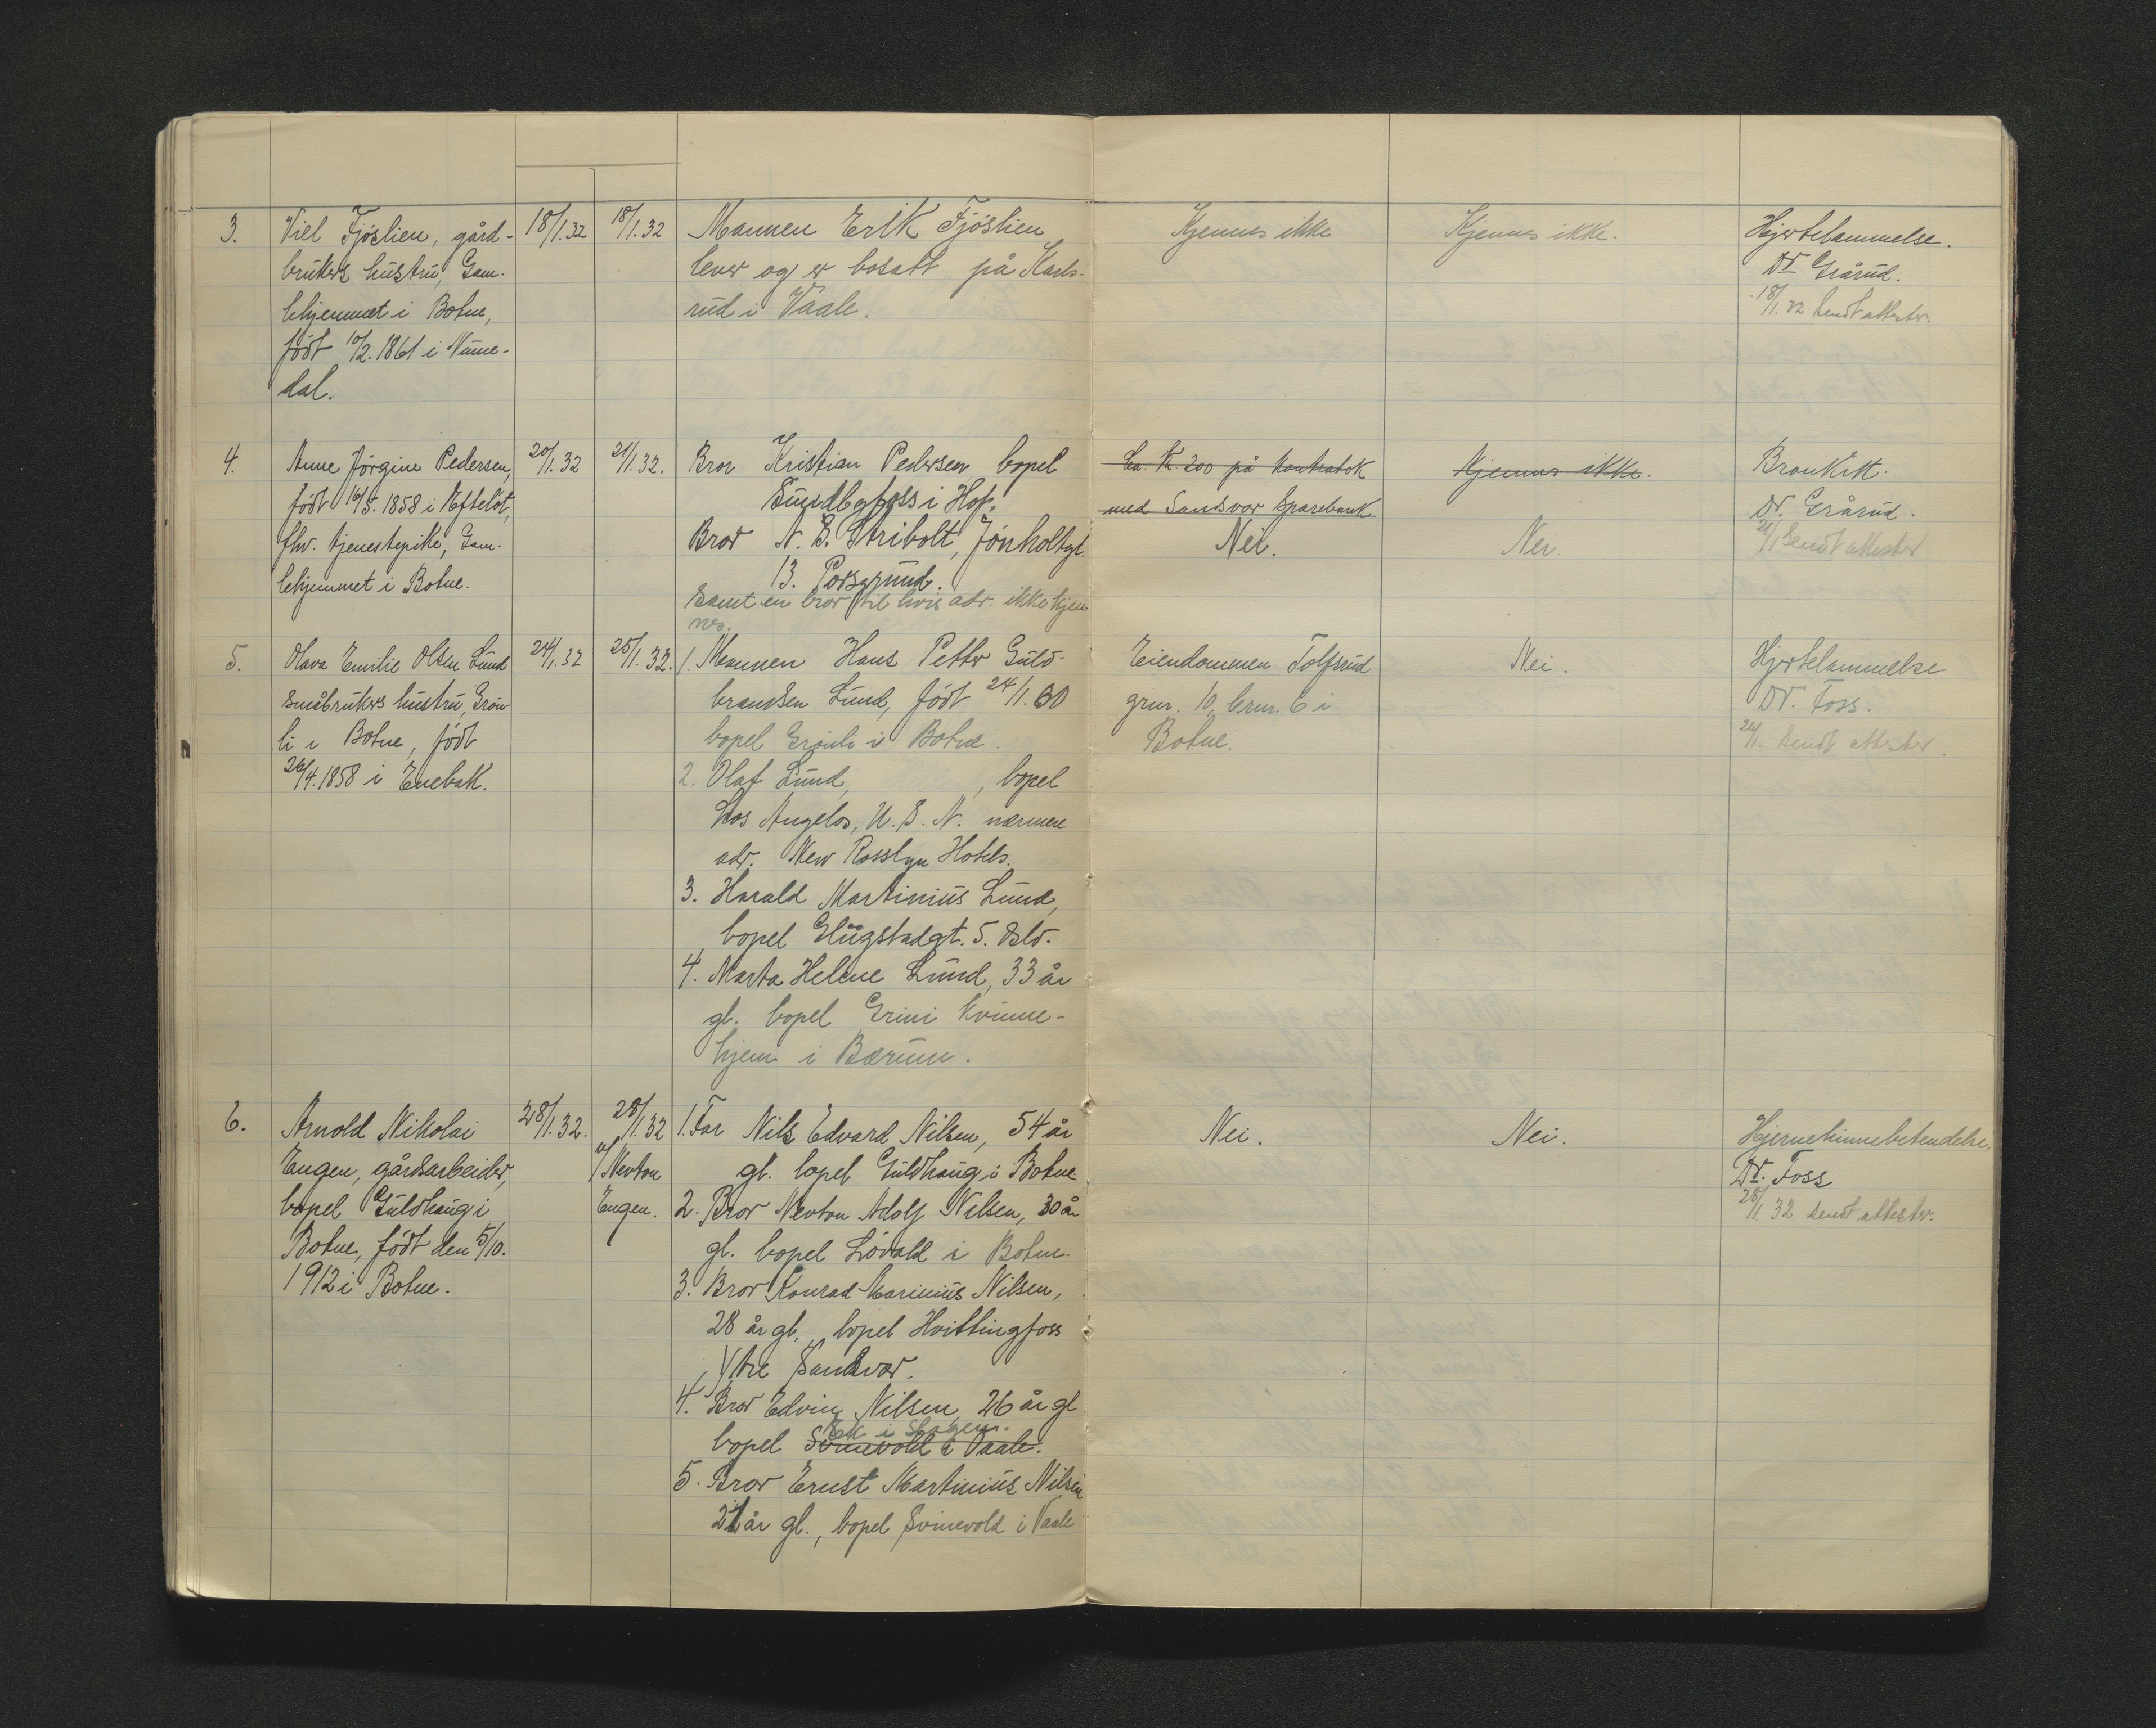 3.
Viel Fjöslien, gård-
brukers hustru, Gam-
lehjemmet i Botne,
födt 10/2. 1861 i Nume-
dal.
18/1.32
18/1.32
Mannen Erik Fjöslien
lever og er bosatt på Karls-
rud i Vaale.
Kjennes ikke
Kjennes ikke.
Hjertelammelse.
Dr Grårud.
18/1.32 Sendt attester.
4.
Anne Jörgine Pedersen,
födt 16/5. 1858 i Eftelöt,
fhv. tjenestepike, Gam-
lehjemmet i Botne.
20/1.32
21/1.32.
Bror Kristian Pedersen bopel
Sundbyfoss i Hof.
Bror N. B. Stribolt, Jönholtgt.
13. Porsgrund.
Samt en bror til hvis adr. ikke kjen-
nes.
Ca. Kr. 200 på kontrabok
med Sandsvær Sparebank
Nei.
Kjennes ikke.
Nei.
Bronkitt.
Dr. Grårud.
21/1 Sendt attester
5.
Olava Emilie Olsen Lund
småbrukers hustru, Grön-
li i Botne, födt
26/4. 1858 i Enebak.
24/1.32
25/1.32.
1. Mannen Hans Petter Guld-
brandsen Lund, födt 24/1.60
bopel Grönli i Botne.
2. Olaf Lund, , bopel
Los Angelos, U. S. N. nærmere
adr. New Rosslyn Hotels.
3. Harald Martinius Lund,
bopel Glügstadgt. 5. Oslo.
4. Marta Helene Lund, 33 år
gl. bopel Grini kvinne-
hjem i Bærum.
Eiendommen Tolfsrud
gnr. 10, brnr. 6 i
Botne.
Nei.
Hjertelammelse
Dr. Foss.
26/1. Sendt attester.
6.
Arnold Nikolai
Engen, gårdsarbeider,
bopel Guldhaug i
Botne, födt den 5/10.
1912 i Botne.
28/1.32.
28/1.32
v/ Nevton
Engen.
1. Far Nils Edvard Nilsen, 54 år
gl. bopel Guldhaug i Botne
2. Bror Nevton Adolf Nilsen, 30 år
gl. bopel Lövald i Botne.
3. Bror Konrad Marinius Nilsen,
28 år gl., bopel Hvittingfoss
Ytre Sandsvær.
4. Bror Edvin Nilsen, 26 år gl
Ek i Skogem.
bopel Svinevold i Vaale.
5. Bror Ernst Martinius Nilsen
21 år gl., bopel Svinevold i Vaale
Nei.
Nei.
Hjernehinnebetendelse.
Dr. Foss
28/1 32 Sendt attester.